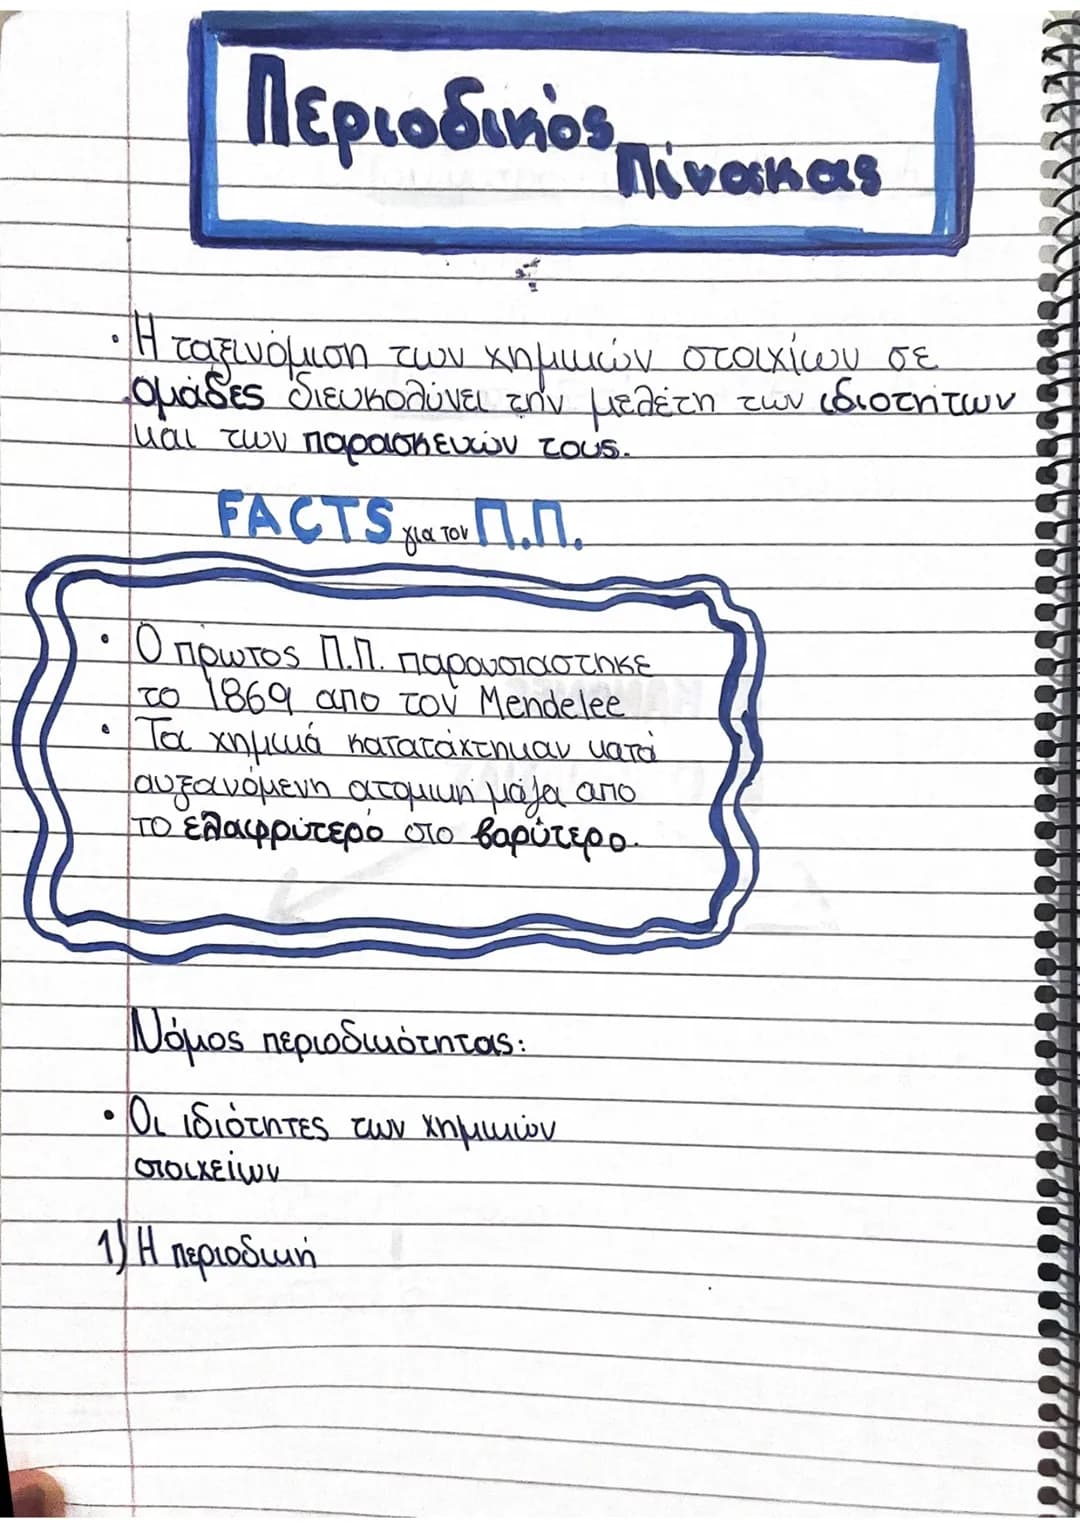 Περιοδικός
Πίνακας
• Η ταξινόμιση των χημικών στοιχίων σε
ομάδες διευκολύνει την μελέτη των ιδιοτήτων
και των παρασκευών τους.
FACTS για τον Π.Π.
• Ο πρωτος Π.Π. παρουσιαστηκε
το 1869 απο τον Mendelee
• Τα χημικά κατατάχτηκαν κατά
αυξανόμενη ατομικη μάζα απο
το ελαφρύτερο στο βαρύτερο.
Νόμος περιοδικότητας:
• Οι ιδιότητες των χημικών
στοιχείων
1) Η περιοδική